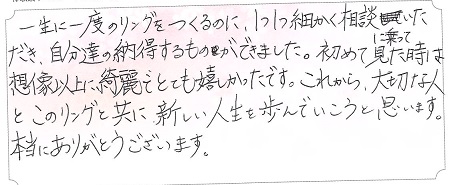 一生に一度のリングをつくるのに、1つ1つ細かく相談に乗っていた
だき、自分達の納得するものができました。初めて見た時は
想像以上に綺麗でとても嬉しかったです。これから、大切な人
とこのリングと共に新しい人生を歩んでいこうと思います。
本当にありがとうございます。